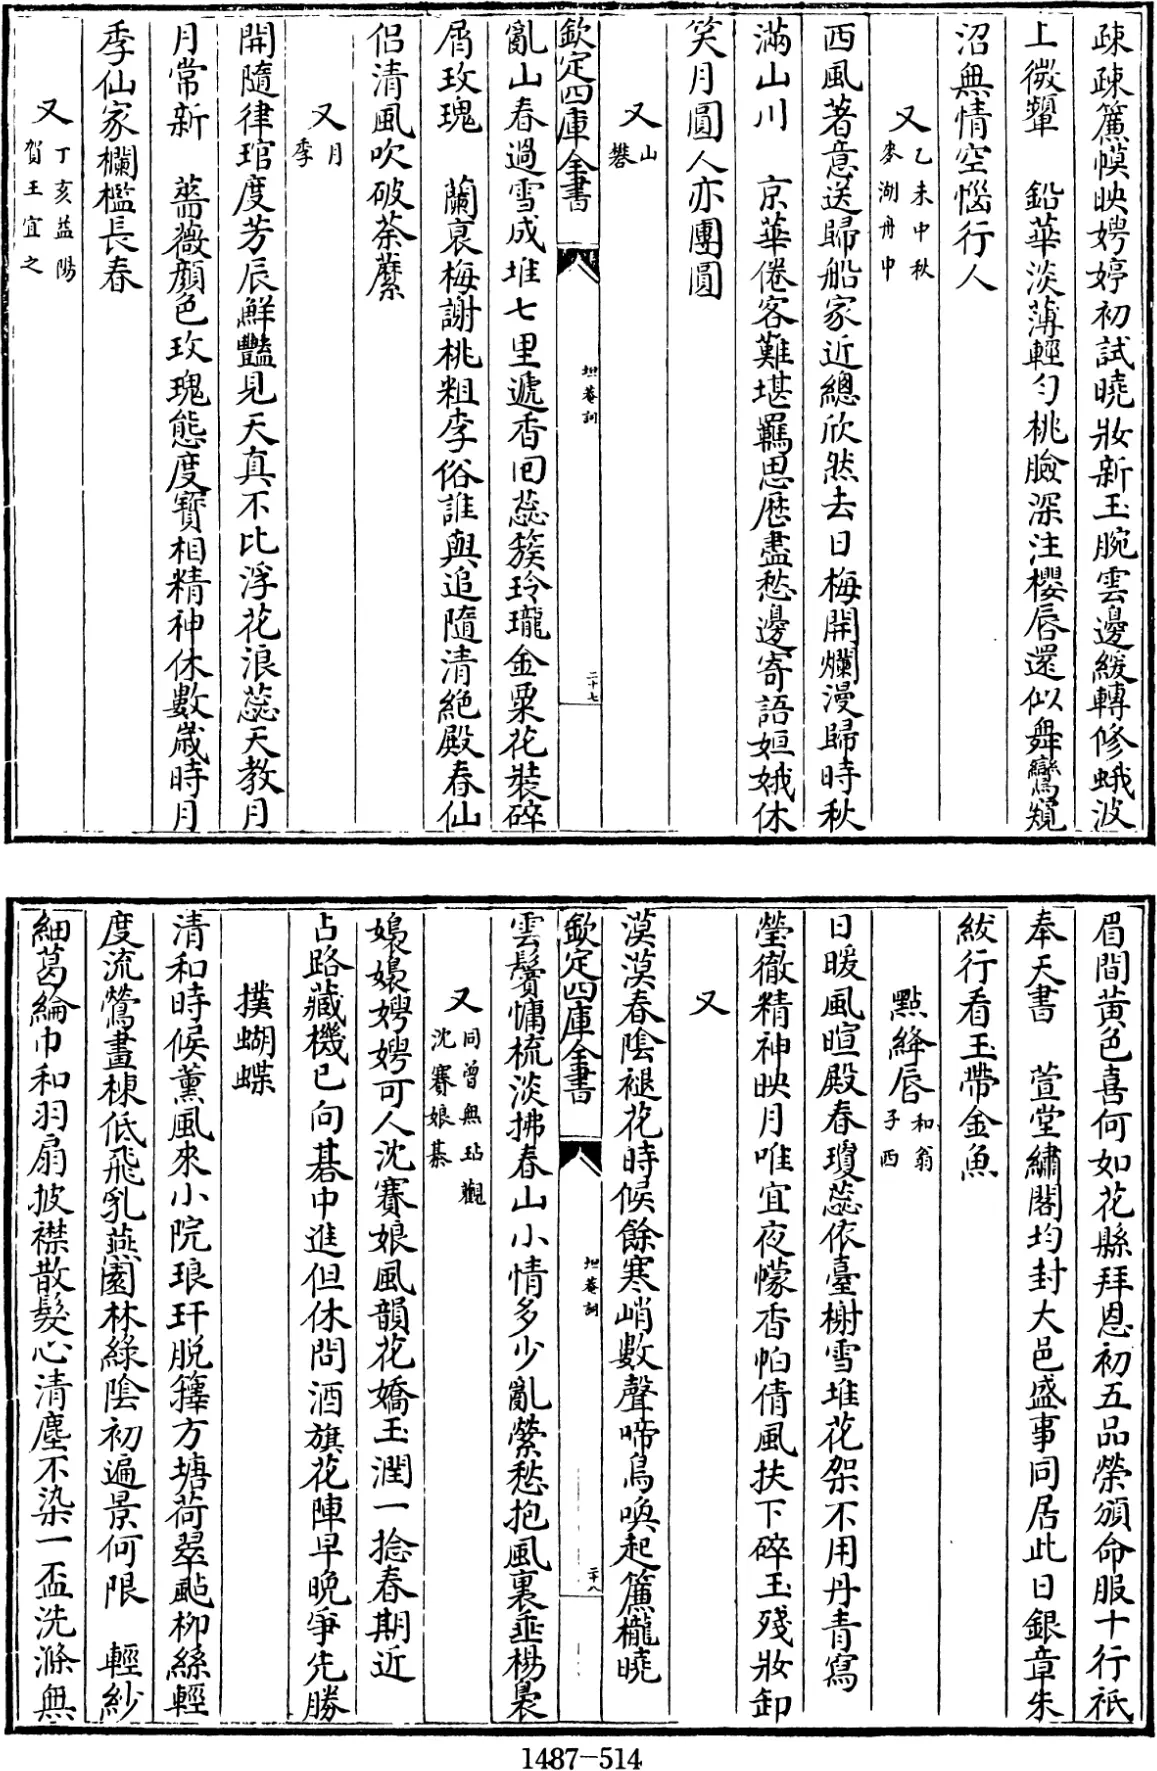 疎疎簾幙映娉婷初試曉妝新玉腕雲邊緩轉修蛾波
上微顰　鉛華淡薄輕勻桃臉深注櫻唇還似舞鸞窺
沼無情空惱行人
又乙未中秋麥湖舟中
西風著意送歸船家近總欣然去日梅開爛漫歸時秋
滿山川　京華倦客難堪羈思歷盡愁邊寄語姮娥休
笑月圓人亦團圓
又山礬
欽定四庫全書　坦菴詞　二十七
亂山春過雪成堆七里遞香囘蕊簇玲瓏金粟花裝碎
屑玫瑰　蘭衰梅謝桃粗李俗誰與追隨清絶殿春仙
侣清風吹破荼蘼
又月季
開隨律琯度芳辰鮮豔見天真不比浮花浪蕊天教月
月常新　薔薇顏色玫瑰態度寳相精神休數歲時月
季仙家欄檻長春
又丁亥益陽賀王宜之
眉間黄色喜何如花縣拜恩初五品榮頒命服十行祇
奉天書　萱堂繡閣均封大邑盛事同居此日銀章朱
紱行看玉帶金魚
點絳唇和翁子西
日暖風暄殿春瓊蕊依臺榭雪堆花架不用丹青寫
瑩徹精神映月唯宜夜幪香帕倩風扶下碎玉殘妝卸
又
漠漠春陰褪花時候餘寒峭數聲啼鳥喚起簾櫳曉
欽定四庫全書　坦菴詞　二十八
雲鬢慵梳淡拂春山小情多少亂縈愁抱風裏垂楊裊
又同曾無玷觀沈賽娘棊
嬝嬝娉娉可人沈賽娘風韻花嬌玉潤一捻春期近
占路藏機已向棊中進但休問酒旗花陣早晚爭先勝
撲蝴蝶
清和時候薰風來小院琅玕脱籜方塘荷翠颭柳絲輕
度流鶯畫棟低飛乳燕園林緑陰初遍景何限　輕紗
細葛綸巾和羽扇披襟散髮心清塵不染一盃洗滌無
1487—514